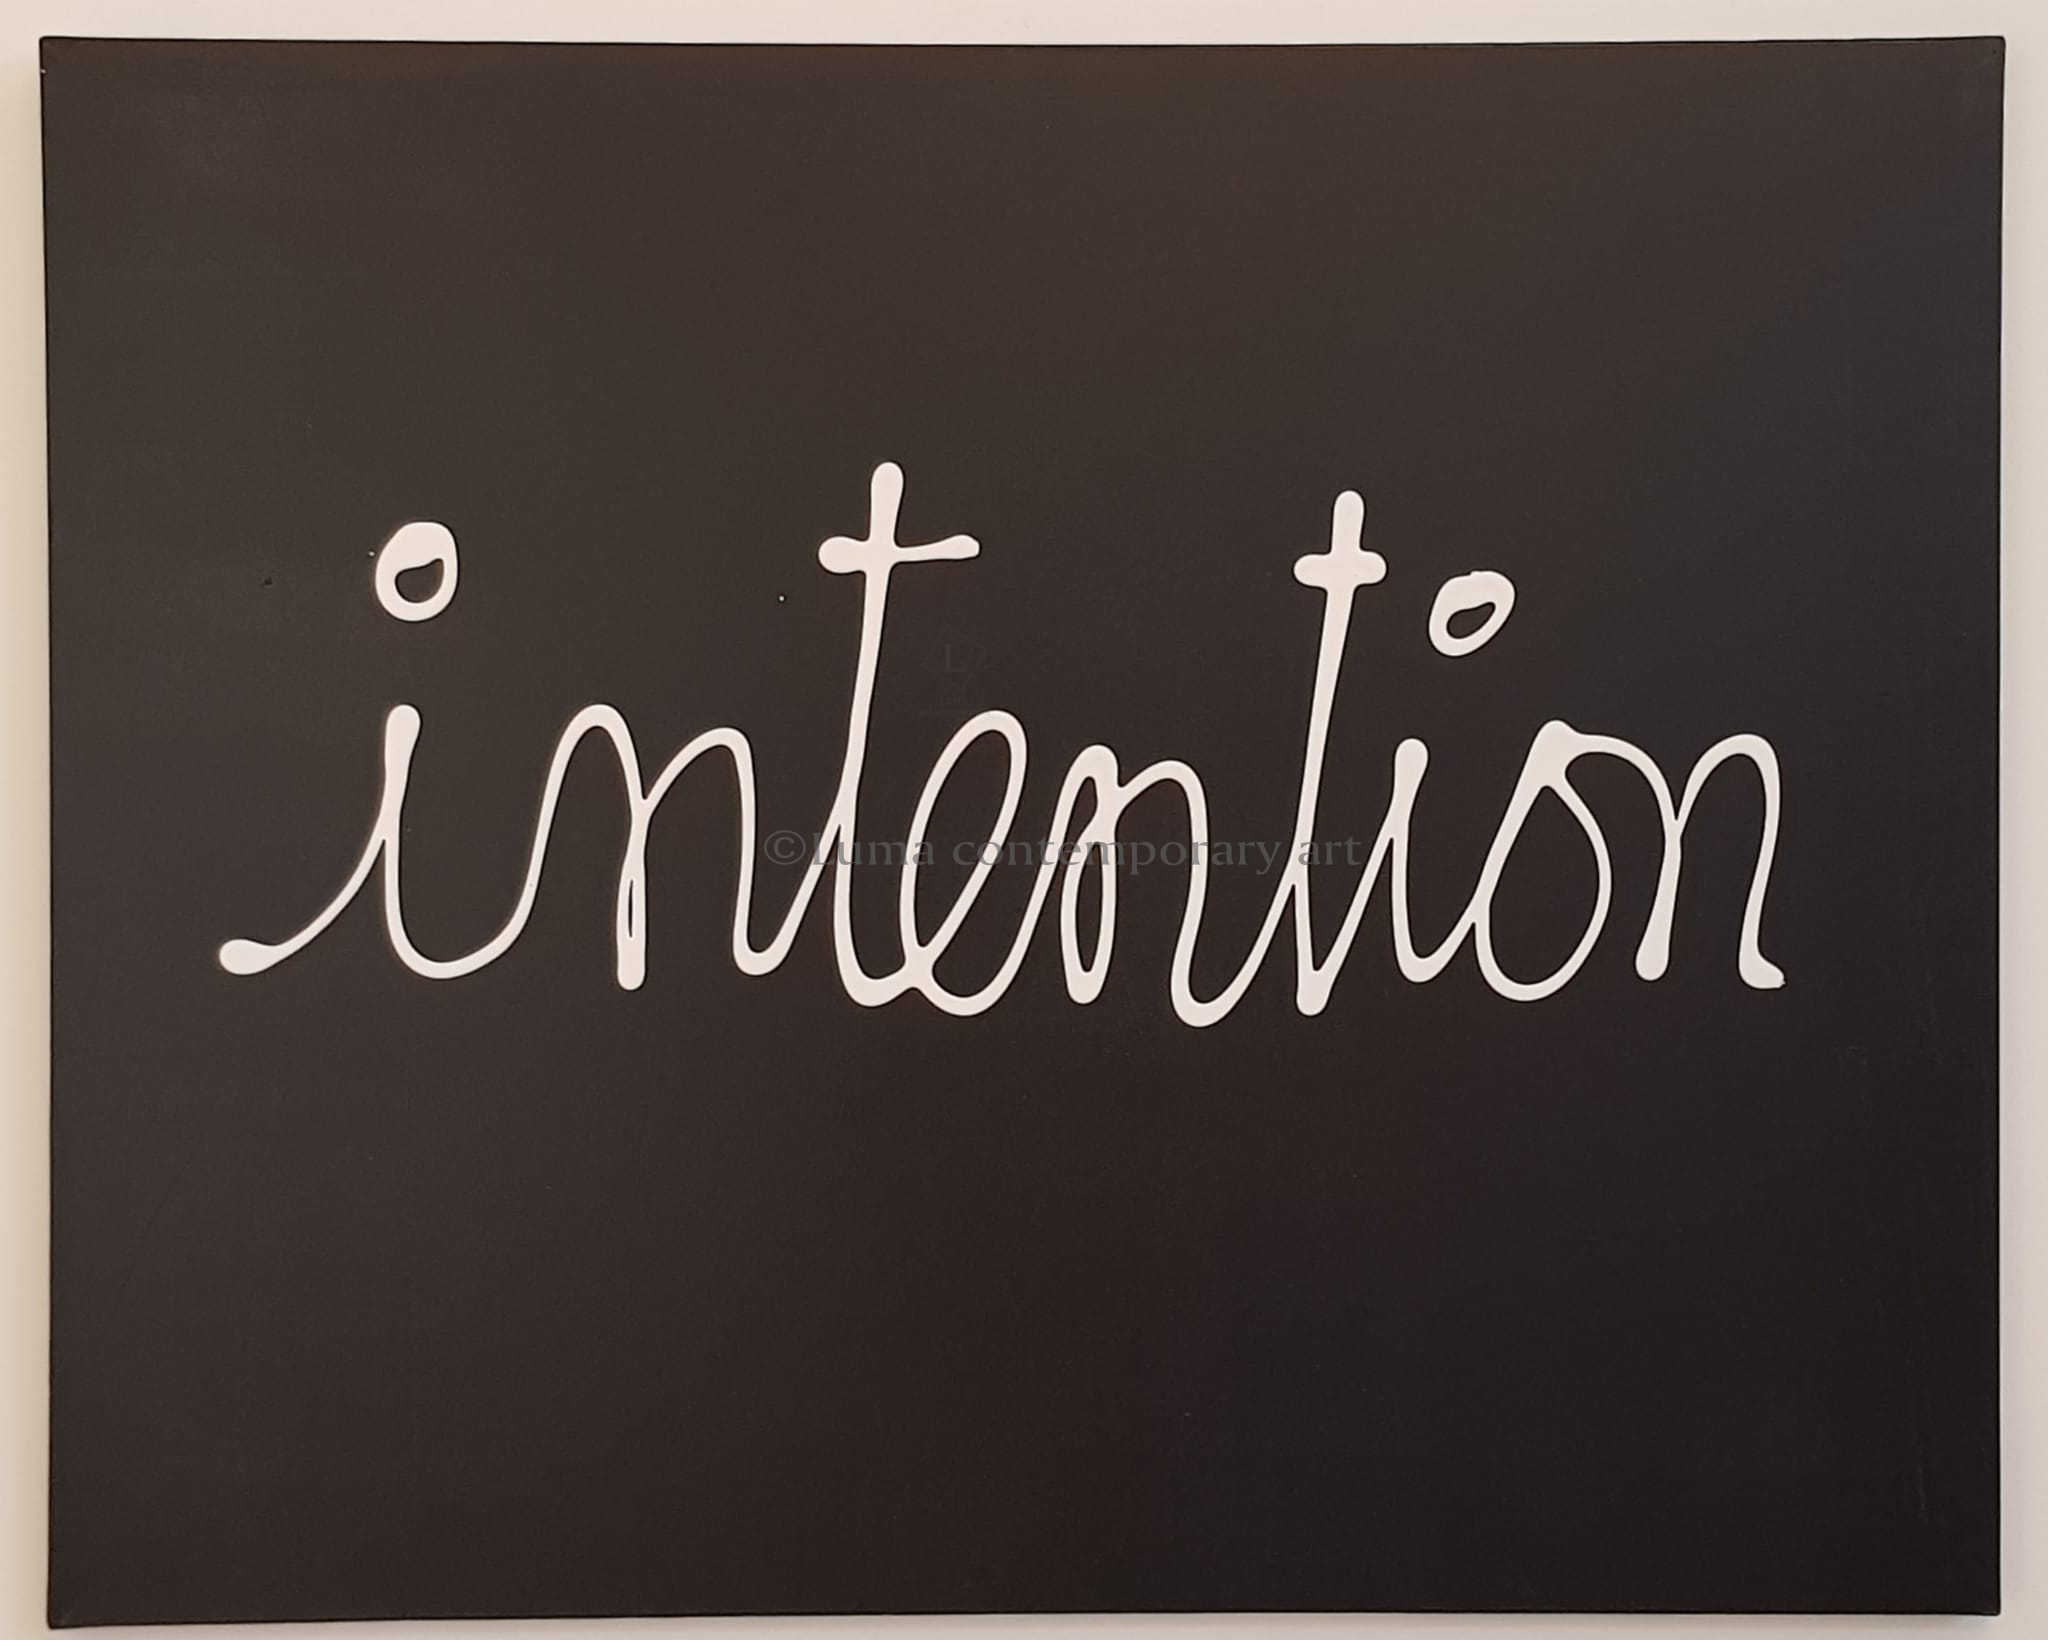 intention
©Luma contemporary art
L